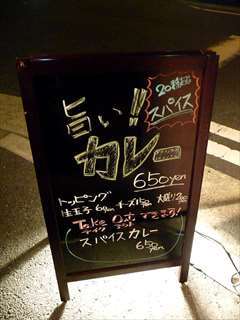 20時迄
スパイス
旨い!!
カレー
650yen
トッピング
生玉子 60yen チーズ 大盛り
Take Out できます!
テイク アウト
スパイスカレー
650yen